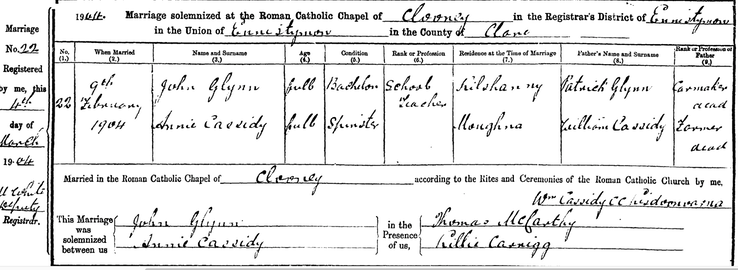 1904. Marriage solemnized at the Roman Catholic Chapel of Clooney in the Registrar's District of Ennistymon
in the Union of Ennistymon in the County of Clare
Marriage
No. 22
Registered
by me, this
4th
day of
March
1904
Registrar.
No. (1.) When Married (2.) Name and Surname (3.) Age (4.) Condition (5.) Rank or Profession (6.) Residence at the Time of Marriage (7.) Father's Name and Surname (8.) Rank or Profession of Father (9.)
22 9th February 1904
John Glynn full Bachelor School Teacher Kilshanny Patrick Glynn Carmaker dead
Annie Cassidy full Spinster Moughna William Cassidy Farmer dead
Married in the Roman Catholic Chapel of Clooney according to the Rites and Ceremonies of the Roman Catholic Church by me,
Wm Cassidy CC
This Marriage was solemnized between us
John Glynn
Annie Cassidy
in the Presence of us,
Thomas McCarthy
Killie Carrigg